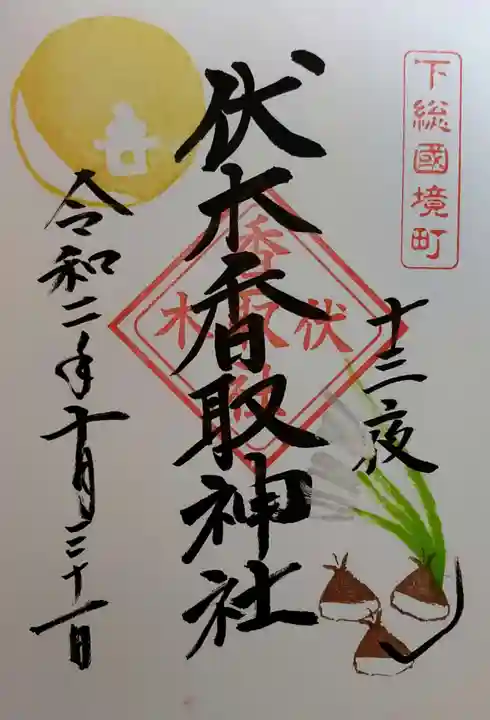 下総國境町
十三夜
伏木香取神社
伏木
香取
社
令和二年十月三十一日